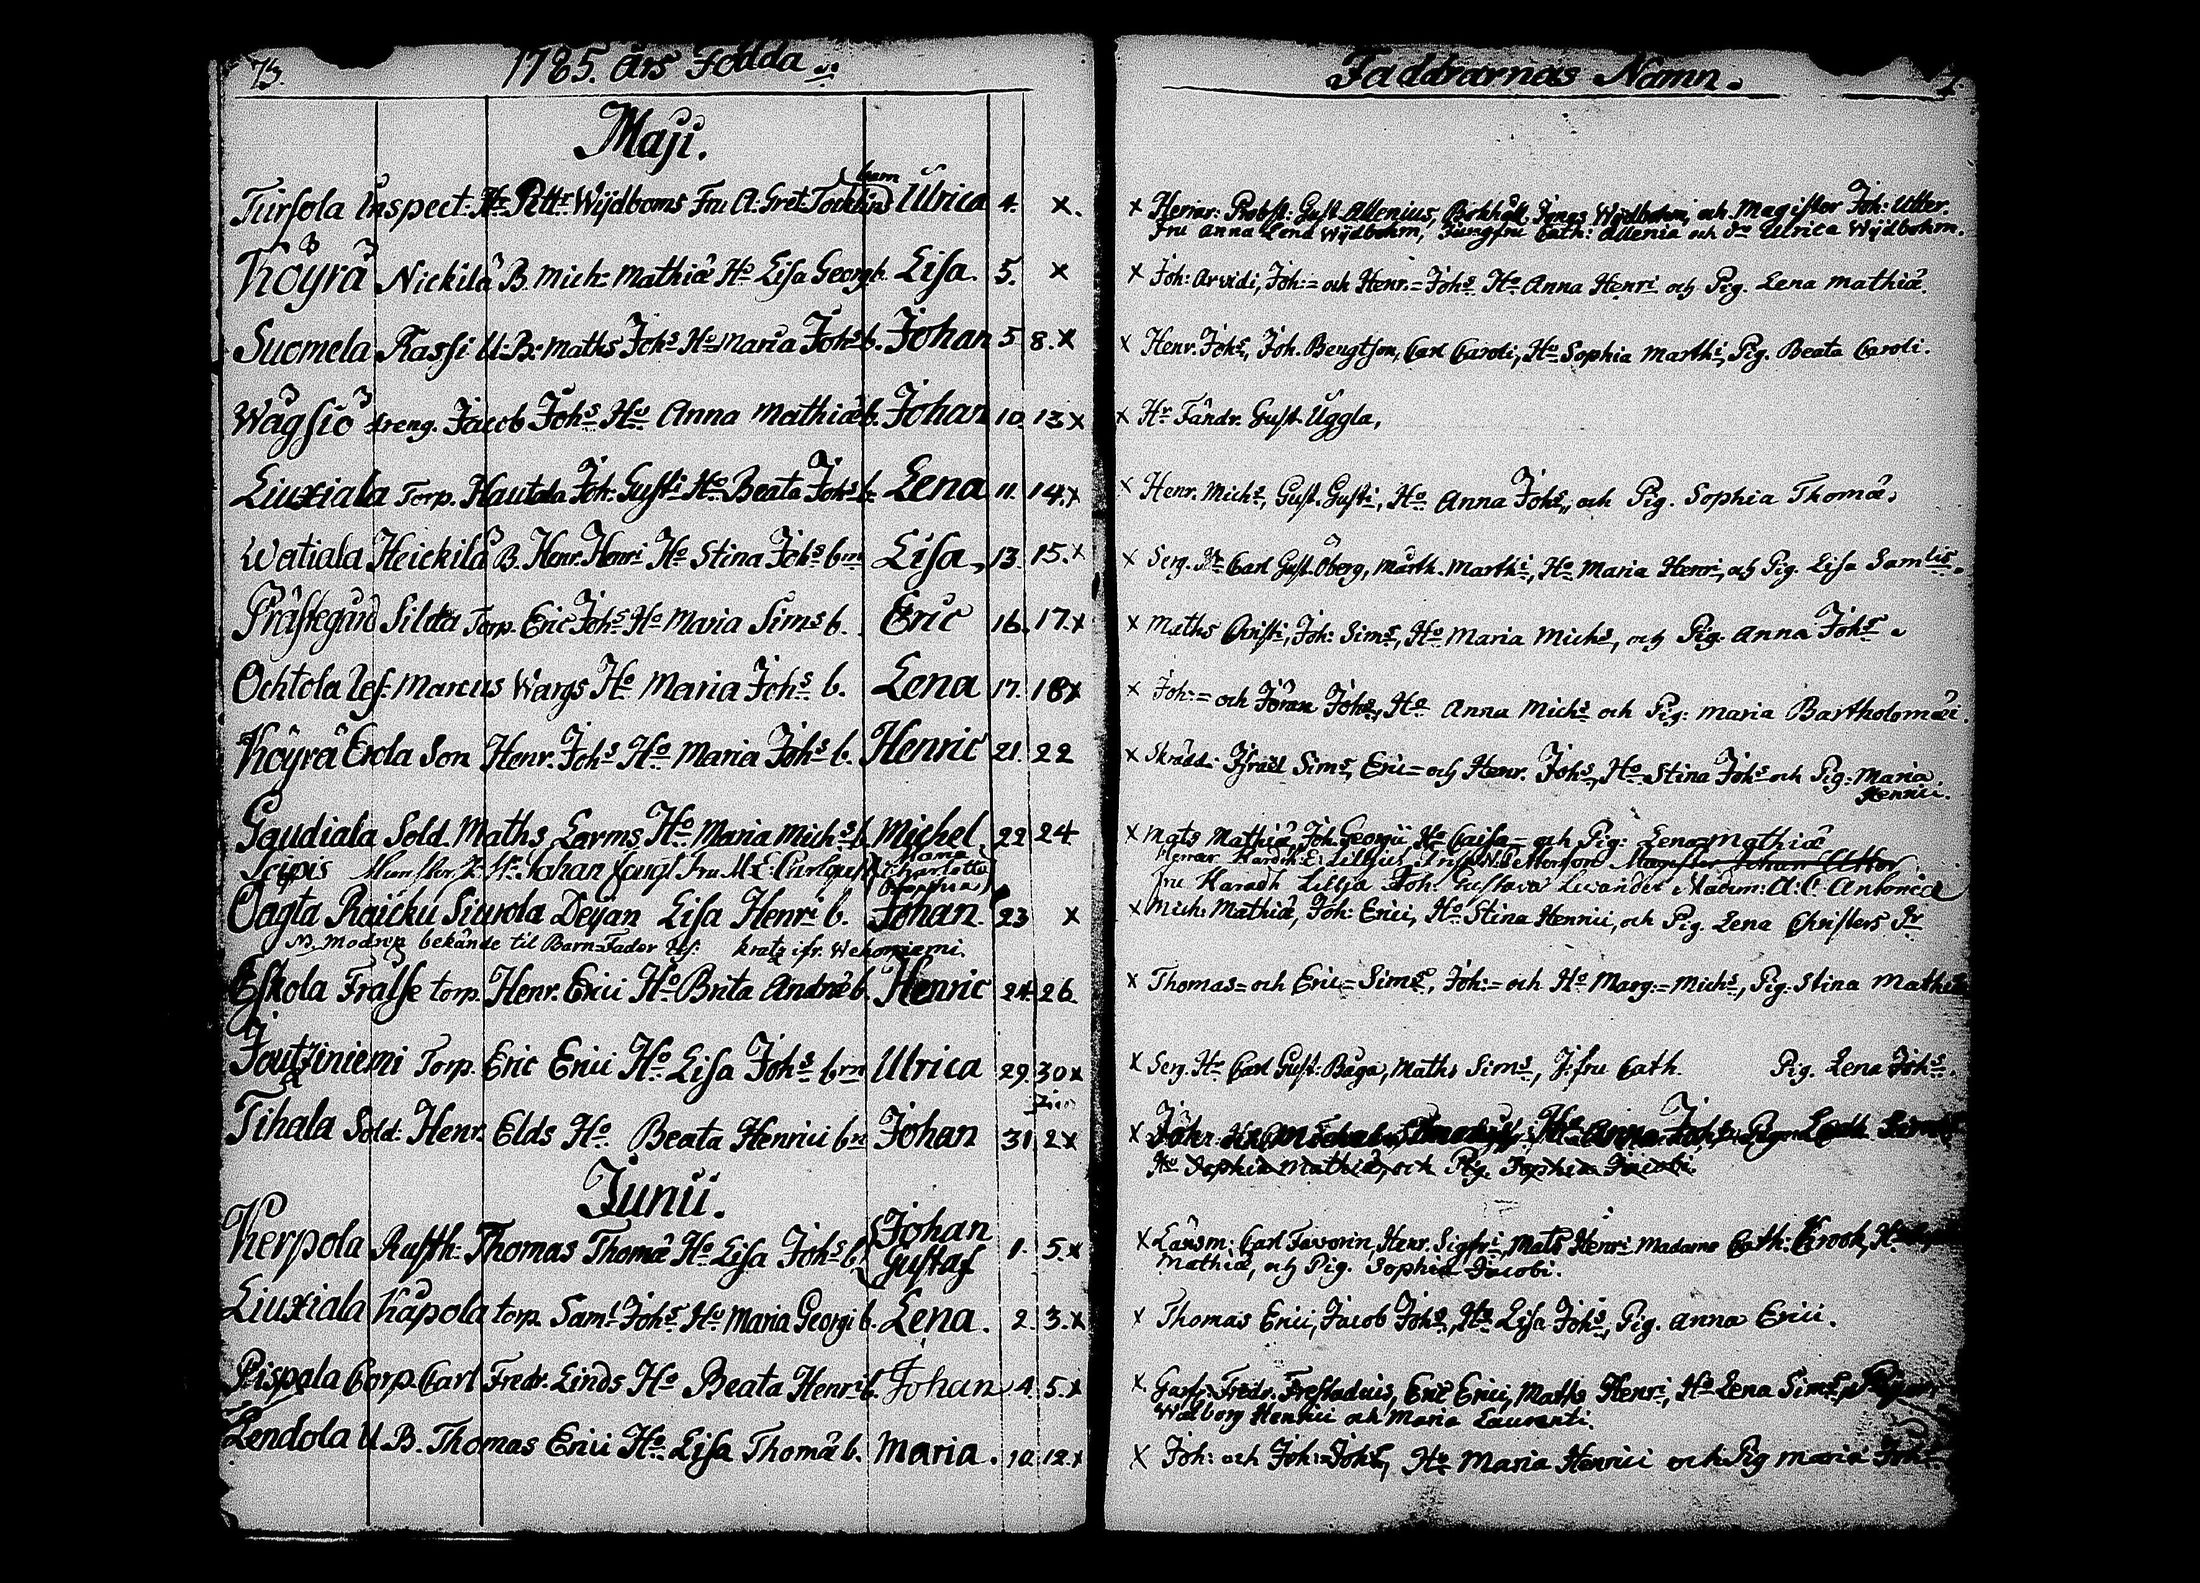 73.
1785. Års Födda
Maji.
Tursola Inspect. Hr Wijdboms Fru A. Gret. barn Ulrica 4. x.
Köyrä Nickilä B. Mich: Mathiæ Ho Lisa Georg b. Lisa. 5. x
Suomela Rassi U.B. Maths Johs Ho Maria Johs b. Johan 5 8. x
Wågsiö dreng. Jacob Johs Ho Anna Mathiæ b. Johan 10 13 x
Liuxiala Torp. Hautala Joh: Gusti Ho Beata Johs b. Lena 11. 14. x
Watiala Heickilä B. Henr. Henri Ho Stina Johs brn Lisa, 13. 15. x
Prästegård Silda Torp. Eric Johs Ho Maria Sims b. Eric 16. 17. x
Ochtola Marcus Wargs Ho Maria Johs b. Lena 17. 18 x
Köyrä Erola Son Henr. Johs Ho Maria Johs b. Henric 21. 22
Saudiala Sold. Maths Larms Ho Maria Michs b. Michel 22 24
Scipis Hr Johan Fru M: C: Maria Charlotta Sophia
Oagta Raicku Siurola Deijan Lisa Henri b. Johan. 23 x
Modren bekände til Barn=Fader kratz ifr. Wehoniemi.
Eskola Frälse torp. Henr. Erici Ho Brita Andræ b. Henric 24 26
Joutziniemi Torp. Eric Erici Ho Lisa Johs brn Ulrica 29. 30 x
Tihala Sold: Henr. Elds Ho Beata Henrici brn Johan 31 2 x
Junii.
Kerpola Rusth: Thomas Thomæ Ho Lisa Johs b. Johan Gustaf 1. 5. x
Liuxiala Kåpola torp. Saml Johs Ho Maria Georgi b. Lena. 2. 3. x
Pispala Corp. Carl Fredr. Linds Ho Beata Henri b. Johan 4. 5. x
Lendola U.B. Thomas Erici Ho Lisa Thomæ b. Maria. 10. 12. x
Faddrarnas Namn.
x Herrar: Probst: Gust. Allenius, Jonas Wijdbohm, och Magister Joh: Utter.
Fru Anna Lena Wijdbohm, Jungfru Cath: Allenia och do Ulrica Wijdbohm.
x Joh: Arvidi, Joh:= och Henr:= Johs Ho Anna Henri och Pig. Lena Mathiæ.
x Henr. Johs, Joh. Bengtson, Carl Caroli, Ho Sophia Marthi, Pig. Beata Caroli.
x Hr Fändr. Gust. Uggla,
x Henr. Michs, Gust. Gusti, Ho Anna Johs, och Pig. Sophia Thomæ,
x Serg. Hr Carl Gust. Öberg, Marth. Marthi, Ho Maria Henri, och Pig. Lisa Samlis.
x Maths Christi, Joh: Sims, Ho Maria Michs, och Pig. Anna Johs.
x Joh:= och Jöran Johs, Ho Anna Michs och Pig: Maria Bartholomæi.
x Skrädd: Israel Sims, Eric= och Henr. Johs, Ho Stina Johs och Pig: Maria
Henrici.
x Mats Mathiæ, Joh: Georgii, Ho Caisa= och Pig: Lena= Mathiæ
Herrar Magister Johan Utter
fru Lillja Joh: Gustava Levander Madem: A: C: Antonia
x Mich: Mathiæ, Joh: Erici, Ho Stina Henrici, och Pig. Lena Christers Dr
x Thomas= och Eric= Sims, Joh:= och Ho Marg:= Michs, Pig: Stina
x Serg. Hr Carl Gust: Båga, Maths Sims, J:fru Cath. Pig. Lena Johs.
x Ho Anna Joh:
Ho Sophia Mathiæ, och Pig. Sophia Jacobi.
x Länsm: Carl Favorin, Henr. Sigfri, Mats Henri Madame Cath: Krook,
Mathiæ, och Pig. Sophia Jacobi.
x Thomas Erici, Jacob Johs, Ho Lisa Johs, Pig. Anna Erici.
x Fredr. Frestadius, Eric Erici, Maths Henri, Ho Lena Sims,
Walborg Henrici och Maria Laurenti.
x Joh: och Joh: Johs, Ho Maria Henrici och Pig Maria